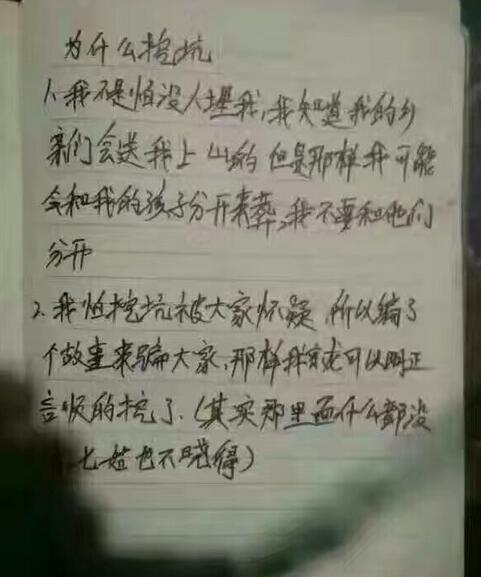 为什么挖坑
1、我不是怕没人埋我，我知道我的乡
亲们会送我上山的 但是那样我可能
会和我的孩子分开来葬，我不要和他们
分开
2、我怕挖坑被大家怀疑 所以编了
个故事来骗大家，那样我就可以明正
言顺的挖了.（其实那里面什么都没
七姑也不晓得）